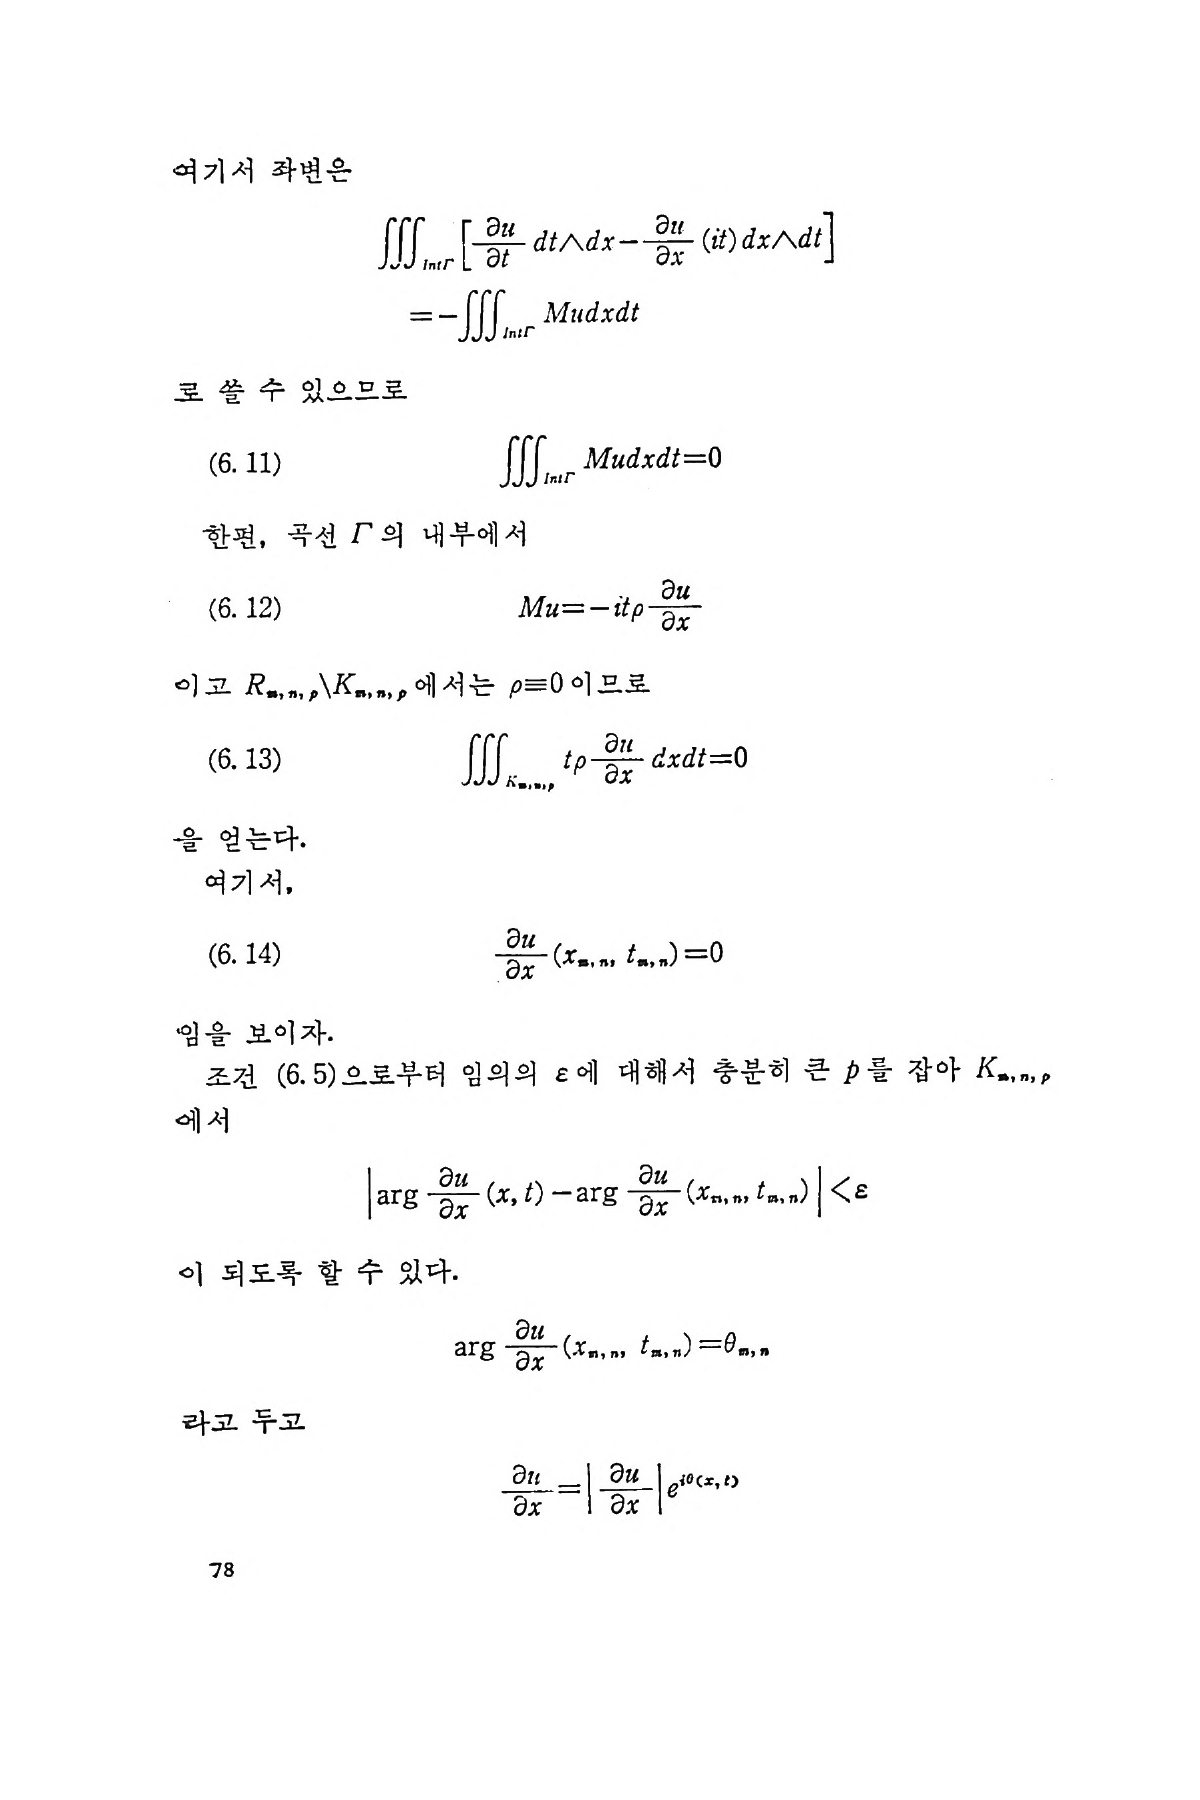 여기서 좌변은
∭_{IntΓ} [∂u/∂t dt∧dx − ∂u/∂x (it) dx∧dt]
= −∭_{IntΓ} Mudxdt
로 쓸 수 있으므로
(6. 11) ∭_{IntΓ} Mudxdt=0
한편, 곡선 Γ의 내부에서
(6. 12) Mu=−itρ ∂u/∂x
이고 R_{m,n,p}\K_{m,n,p}에서는 ρ≡0이므로
(6. 13) ∭_{K_{m,n,p}} tρ ∂u/∂x dxdt=0
을 얻는다.
여기서,
(6. 14) ∂u/∂x (x_{m,n}, t_{m,n})=0
임을 보이자.
조건 (6. 5)으로부터 임의의 ε에 대해서 충분히 큰 p를 잡아 K_{m,n,p}
에서
|arg ∂u/∂x (x, t) −arg ∂u/∂x (x_{m,n}, t_{m,n})| <ε
이 되도록 할 수 있다.
arg ∂u/∂x (x_{m,n}, t_{m,n})=θ_{m,n}
라고 두고
∂u/∂x = |∂u/∂x| e^{iθ(x, t)}
78